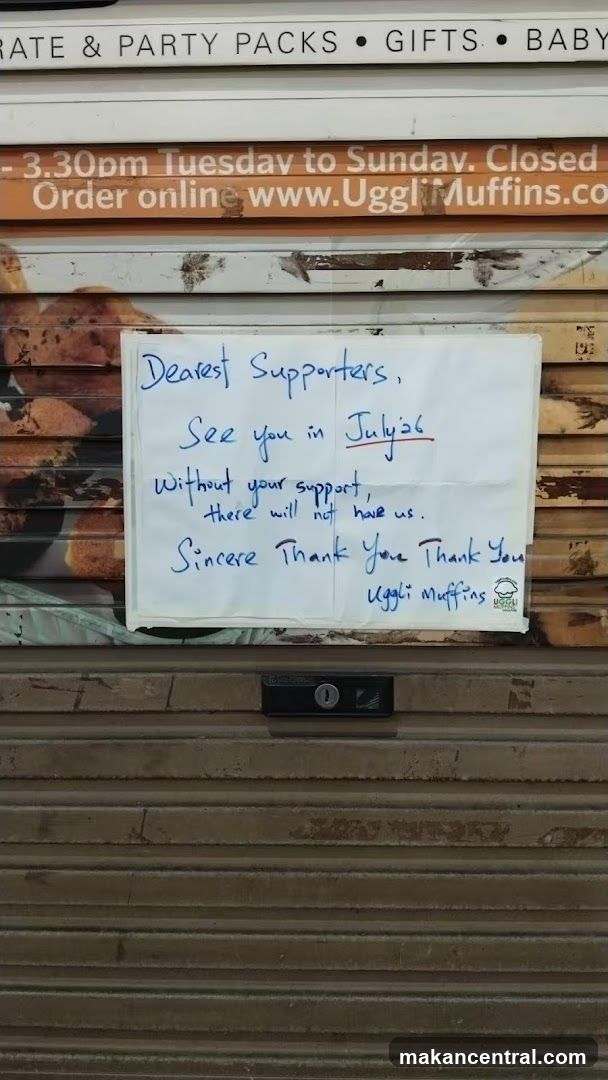 RATE & PARTY PACKS • GIFTS • BABY
- 3.30pm Tuesday to Sunday. Closed
Order online www.UggliMuffins.co
Dearest Supporters,
See you in July'26
Without your support,
there will not have us.
Sincere Thank You Thank You
Uggli Muffins
UGGLI
MUFFINS
makancentral.com